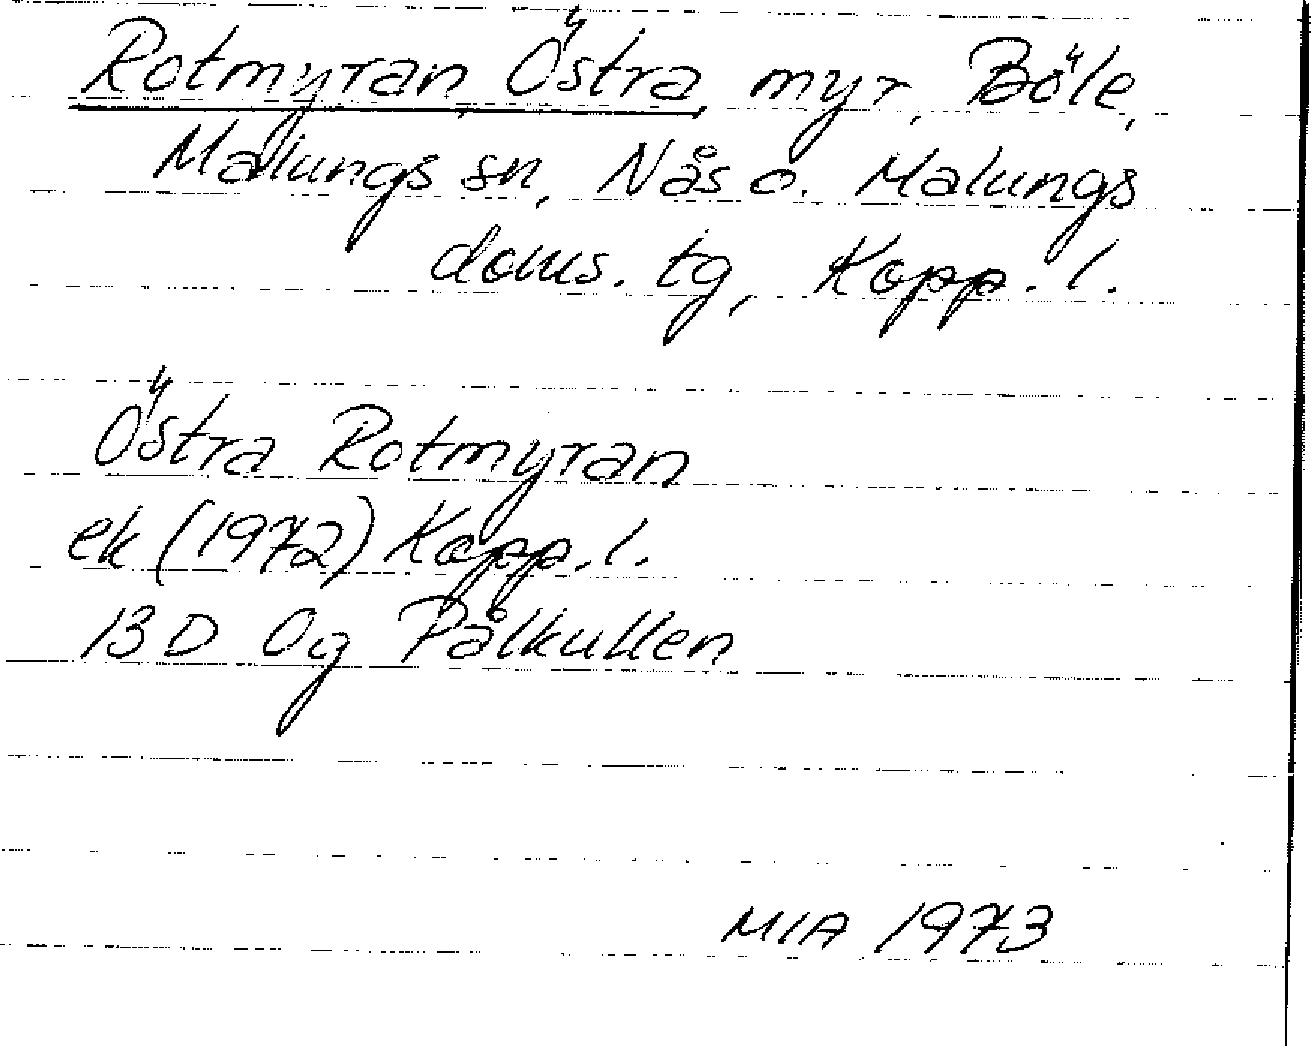 Rotmyran, Östra, myr, Böle,
Malungs sn, Nås o. Malungs
doms. tg, Kopp. l.
Östra Rotmyran
ek (1972) Kopp. l.
13 D 0g Pålkullen
MIA 1973